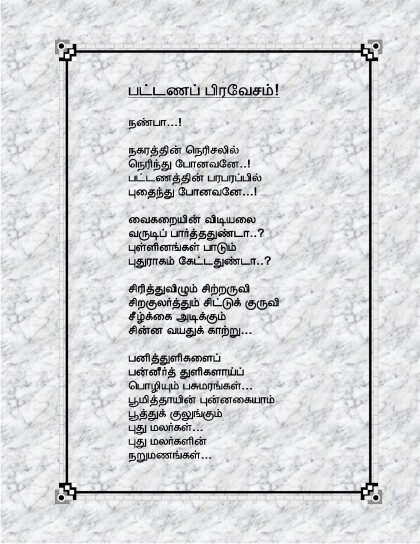 பட்டணப் பிரவேசம்!
நண்பா...!
நகரத்தின் நெரிசலில்
நெரிந்து போனவனே..!
பட்டணத்தின் பரபரப்பில்
புதைந்து போனவனே...!
வைகறையின் விடியலை
வருடிப் பார்த்ததுண்டா..?
புள்ளினங்கள் பாடும்
புதுராகம் கேட்டதுண்டா..?
சிரித்துவிழும் சிற்றருவி
சிறகுலர்த்தும் சிட்டுக் குருவி
சீழ்க்கை அடிக்கும்
சின்ன வயதுக் காற்று...
பனித்துளிகளைப்
பன்னீர்த் துளிகளாய்ப்
பொழியும் பசுமரங்கள்...
பூமித்தாயின் புன்னகையாம்
பூத்துக் குலுங்கும்
புது மலர்கள்...
புது மலர்களின்
நறுமணங்கள்...